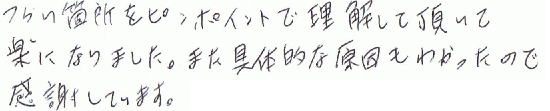 つらい箇所をピンポイントで理解して頂いて
楽になりました。また具体的な原因もわかったので
感謝しています。